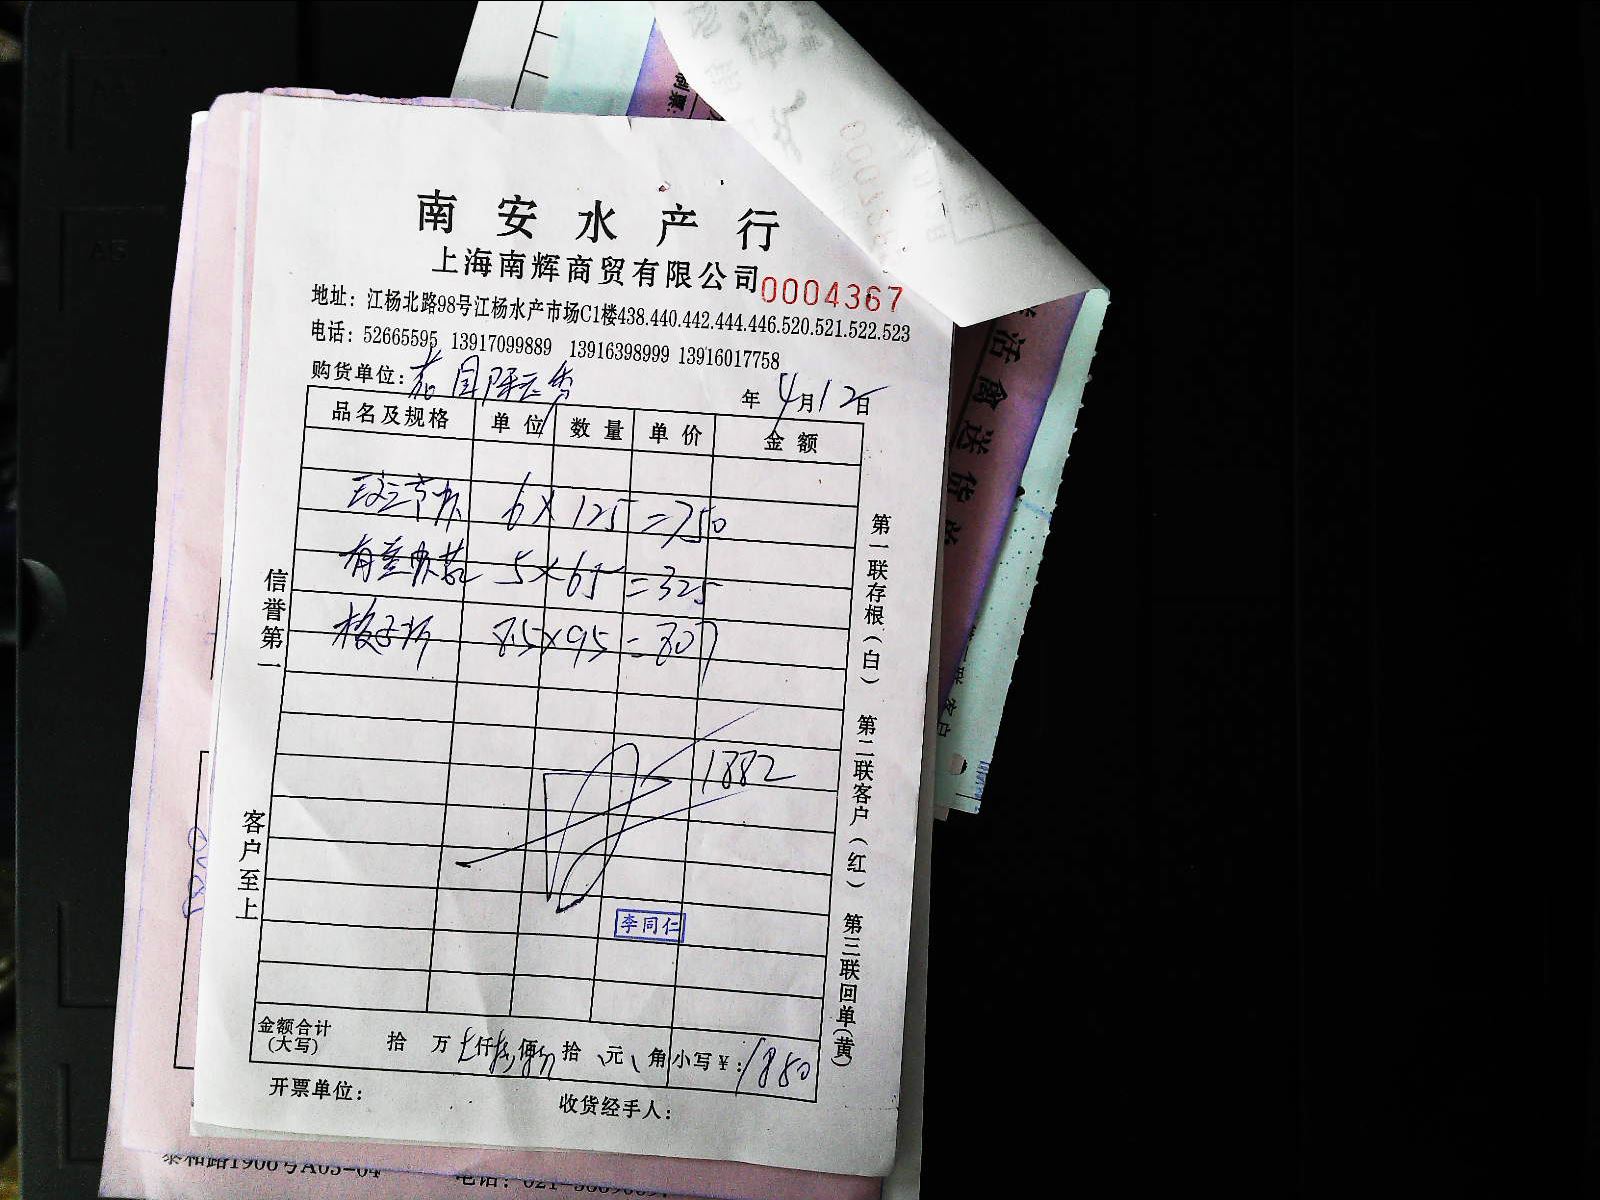 南安水产行
上海南辉商贸有限公司 0004367
地址：江杨北路98号江杨水产市场C1楼438.440.442.444.446.520.521.522.523
电话：52665595 13917099889 13916398999 13916017758
购货单位： 年 4月12日
品名及规格 单位 数量 单价 金额
6×125=750
5×65=325
8.5×95=807
1882
李同仁
金额合计(大写) 拾 万 仟 佰 拾 元 角 小写￥：1880
开票单位： 收货经手人：
信誉第一
客户至上
第一联存根(白) 第二联客户(红) 第三联回单(黄)
活禽送货单
制票:
泰和路1908号A03-04
电话：021-